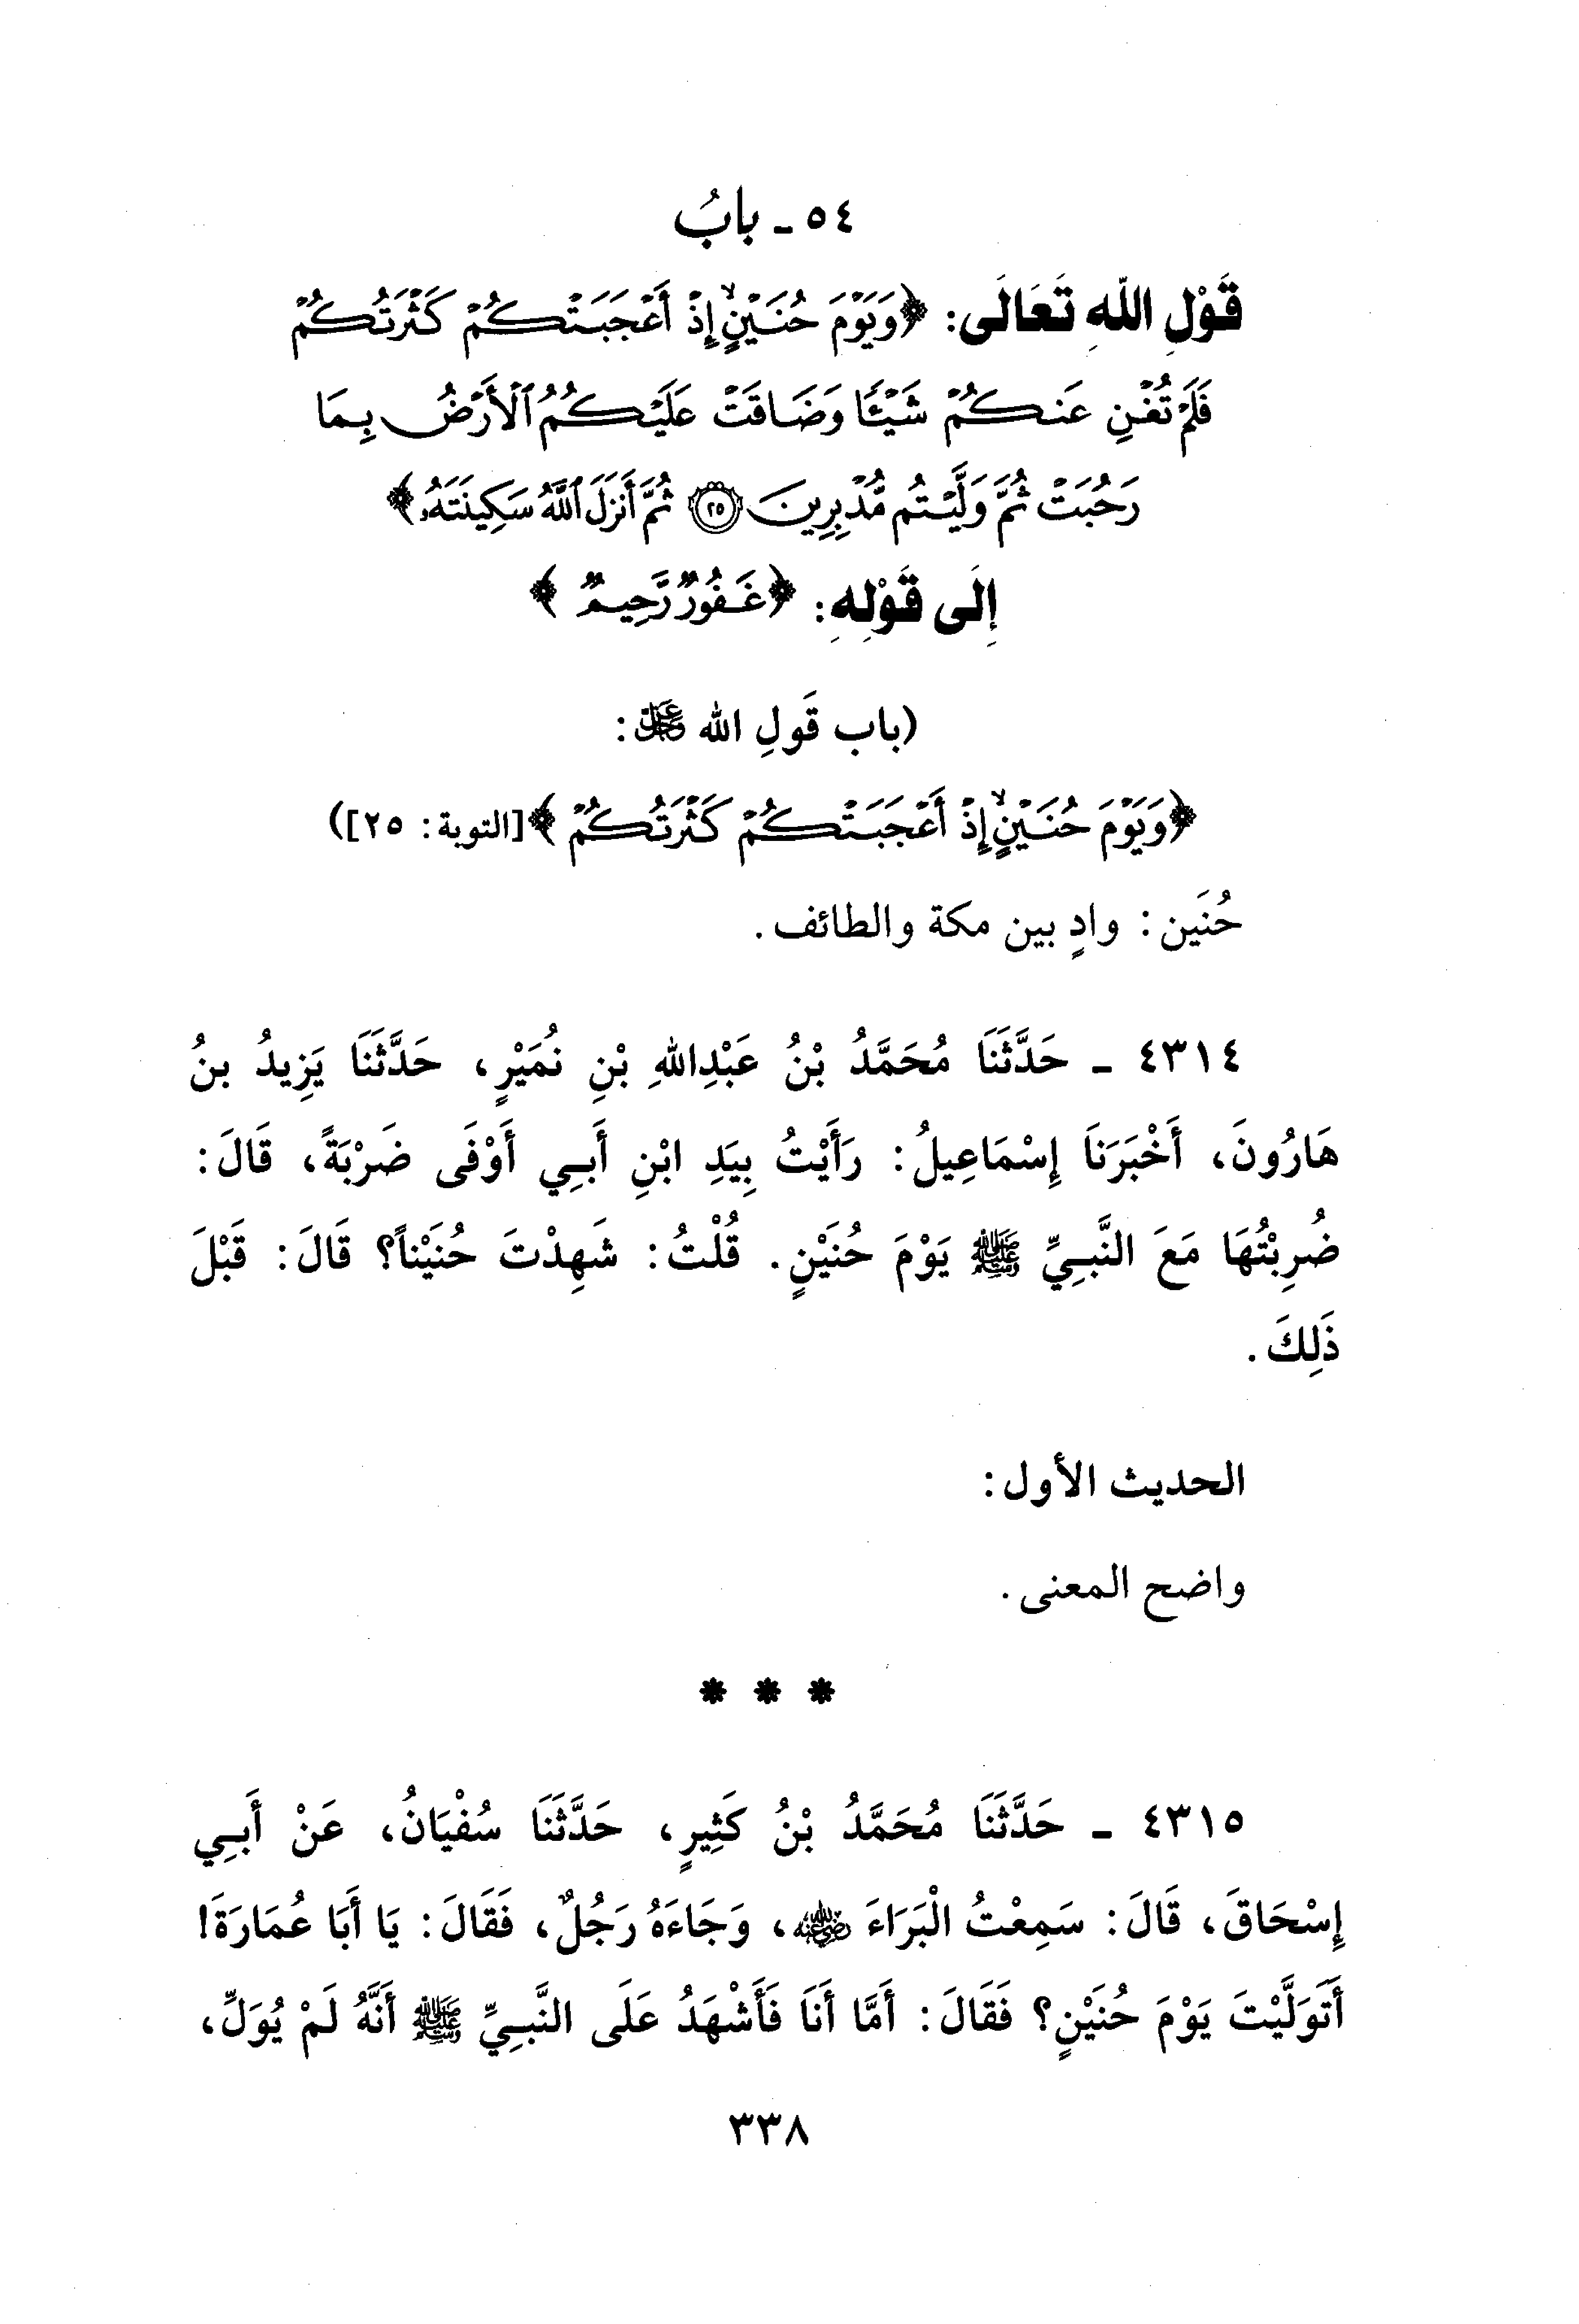 ٥٤ - بابُ
قَوْلِ اللهِ تَعَالَى: ﴿وَيَوْمَ حُنَيْنٍ إِذْ أَعْجَبَتْكُمْ كَثْرَتُكُمْ
فَلَمْ تُغْنِ عَنكُمْ شَيْئًا وَضَاقَتْ عَلَيْكُمُ الْأَرْضُ بِمَا
رَحُبَتْ ثُمَّ وَلَّيْتُم مُّدْبِرِينَ ۝٢٥ ثُمَّ أَنزَلَ اللَّهُ سَكِينَتَهُ﴾
إِلَى قَوْلِهِ: ﴿غَفُورٌ رَّحِيمٌ﴾
(باب قَولِ الله عَزَّ وَجَلَّ:
﴿وَيَوْمَ حُنَيْنٍ إِذْ أَعْجَبَتْكُمْ كَثْرَتُكُمْ﴾ [التوبة: ٢٥])
حُنَين: وادٍ بين مكة والطائف.
٤٣١٤ - حَدَّثَنَا مُحَمَّدُ بْنُ عَبْدِاللهِ بْنِ نُمَيْرٍ، حَدَّثَنَا يَزِيدُ بنُ
هَارُونَ، أَخْبَرَنَا إِسْمَاعِيلُ: رَأَيْتُ بِيَدِ ابْنِ أَبِي أَوْفَى ضَرْبَةً، قَالَ:
ضُرِبْتُهَا مَعَ النَّبِيِّ ﷺ يَوْمَ حُنَيْنٍ. قُلْتُ: شَهِدْتَ حُنَيْناً؟ قَالَ: قَبْلَ
ذَلِكَ.
الحديث الأول:
واضح المعنى.
* * *
٤٣١٥ - حَدَّثَنَا مُحَمَّدُ بْنُ كَثِيرٍ، حَدَّثَنَا سُفْيَانُ، عَنْ أَبِي
إِسْحَاقَ، قَالَ: سَمِعْتُ الْبَرَاءَ رضي الله عنه، وَجَاءَهُ رَجُلٌ، فَقَالَ: يَا أَبَا عُمَارَةَ!
أَتَوَلَّيْتَ يَوْمَ حُنَيْنٍ؟ فَقَالَ: أَمَّا أَنَا فَأَشْهَدُ عَلَى النَّبِيِّ ﷺ أَنَّهُ لَمْ يُوَلِّ،
٣٣٨